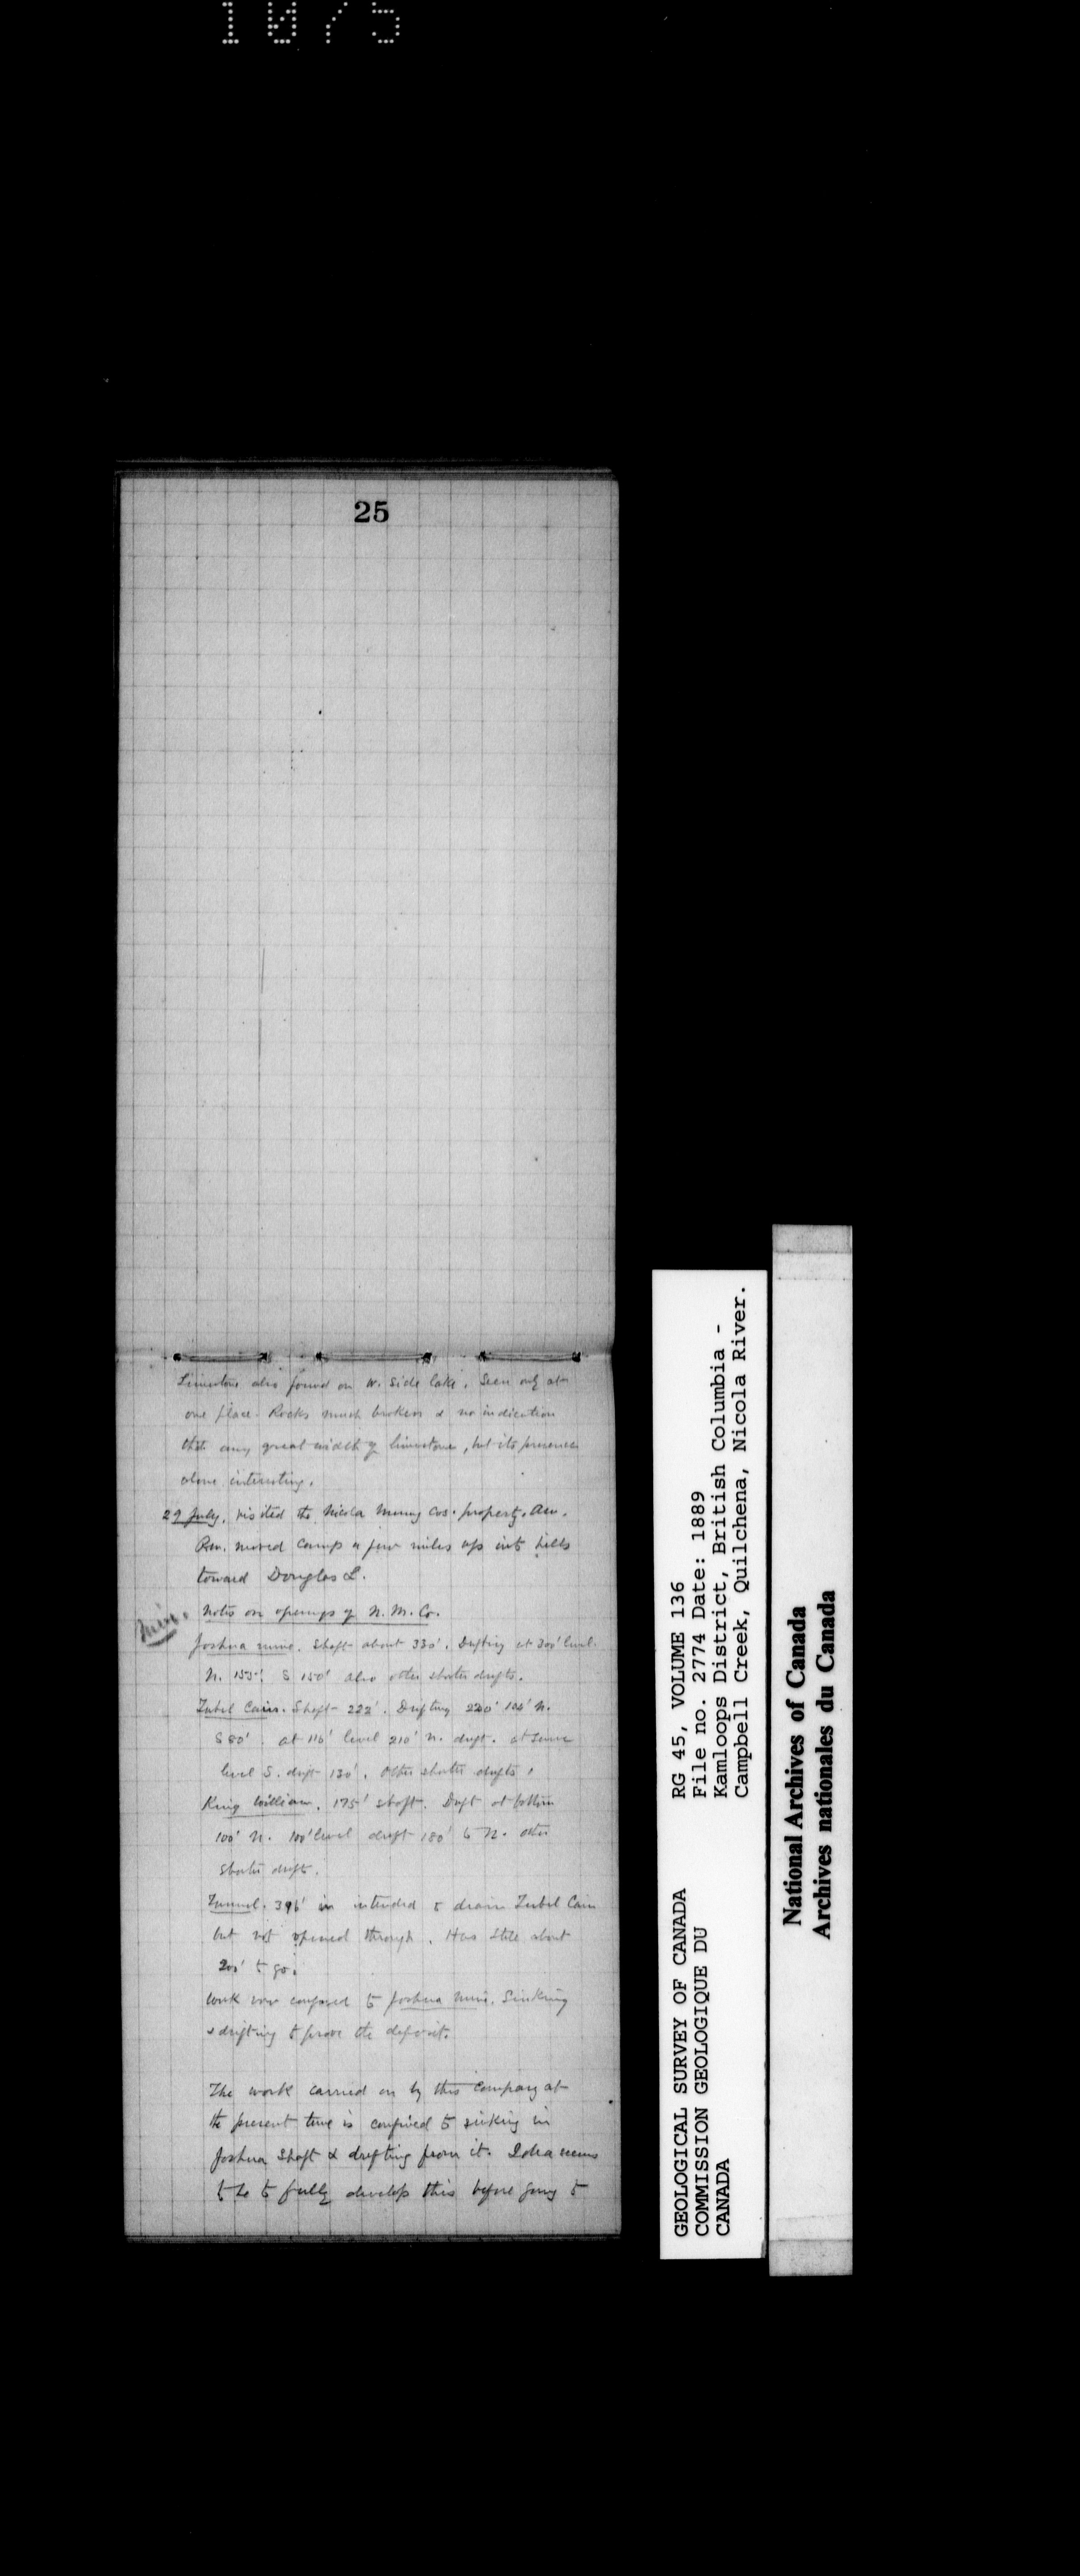 1075
25
Limestone also found on W. side lake. Seen only at
one place. Rocks much broken & no indication
that any great width of limestone, but its presence
alone interesting.
29 July. Visited the Nicola Mining Cos. property. Am.
Pm. moved camp a few miles up into hills
toward Douglas L.
Notes on openings of N. M. Co.
Min.
Joshua mine. Shaft about 330'. Drifting at 300' level.
N. 155'. S 150' also other shorter drifts.
Tubal Cain. Shaft 222'. Drifting 220' 100' N.
S 80'. at 116' level 210' N. drift. at same
level S. drift 130'. Other shorter drifts.
King William. 175' shaft. Drift at bottom
100' N. 100' level drift 180' to N. other
shorter drift.
Tunnel. 396' in intended to drain Tubal Cain
but not opened through. Has still about
200' to go.
Work now confined to Joshua mine. Sinking
& drifting to prove the deposit.
The work carried on by this Company at
the present time is confined to sinking in
Joshua Shaft & drifting from it. Idea seems
to be to fully develop this before going to
GEOLOGICAL SURVEY OF CANADA
COMMISSION GEOLOGIQUE DU
CANADA
RG 45, VOLUME 136
File no. 2774 Date: 1889
Kamloops District, British Columbia -
Campbell Creek, Quilchena, Nicola River.
National Archives of Canada
Archives nationales du Canada